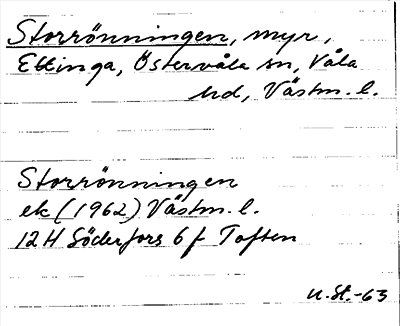 Storrönningen, myr,
Ettinga, Östervåla sn, Våla
hd, Västm. l.
Storrönningen
ek (1962) Västm. l.
12H Söderfors 6 f Toften
U. St.-63